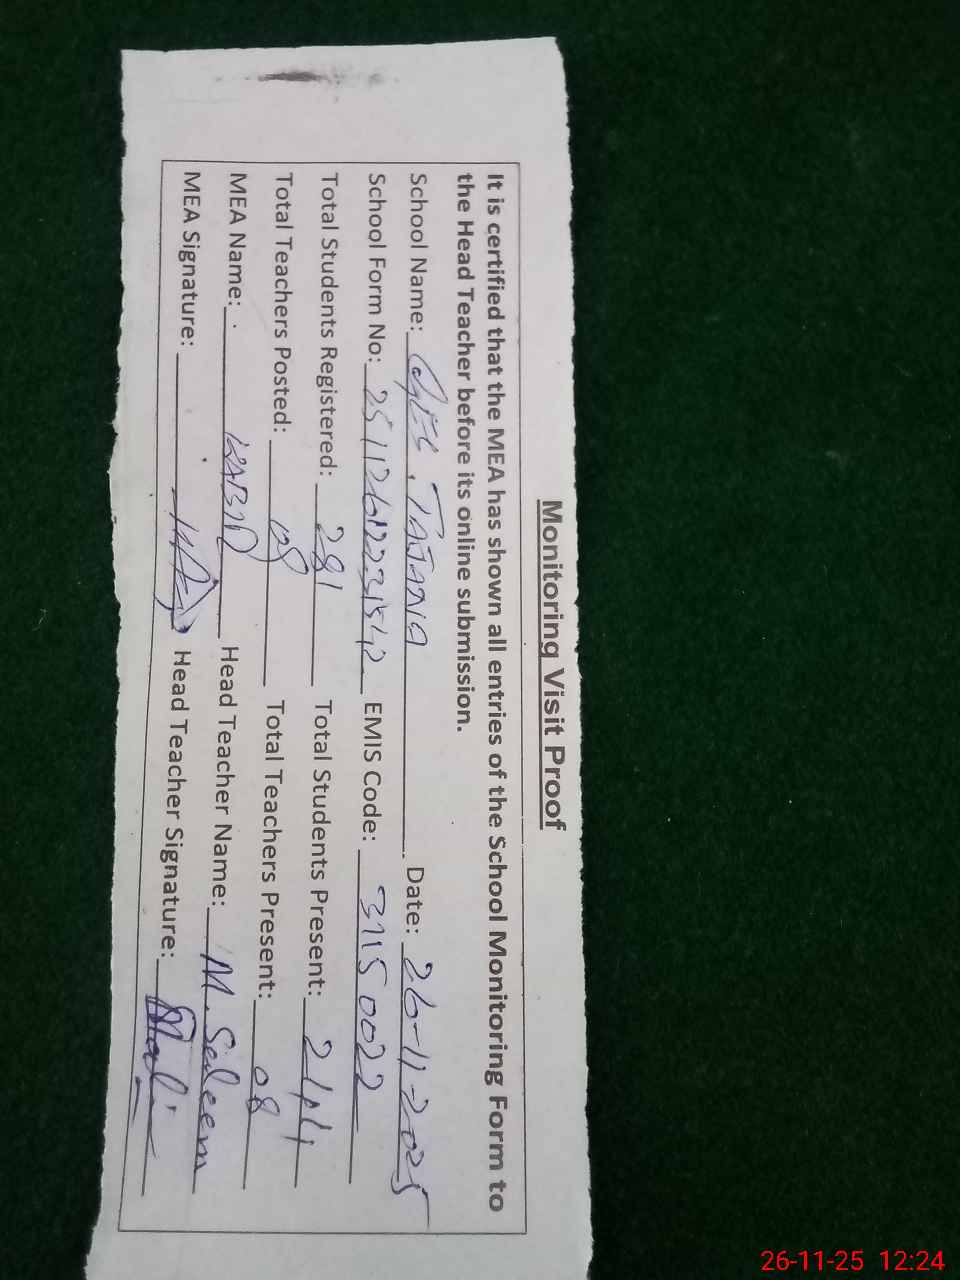 Monitoring Visit Proof
It is certified that the MEA has shown all entries of the School Monitoring Form to
the Head Teacher before its online submission.
School Name: Date: 26-11-2025
School Form No: EMIS Code: 31150022
Total Students Registered: 281 Total Students Present:
Total Teachers Posted: 08 Total Teachers Present: 08
MEA Name: Head Teacher Name: M. Saleem
MEA Signature: Head Teacher Signature:
26-11-25 12:24